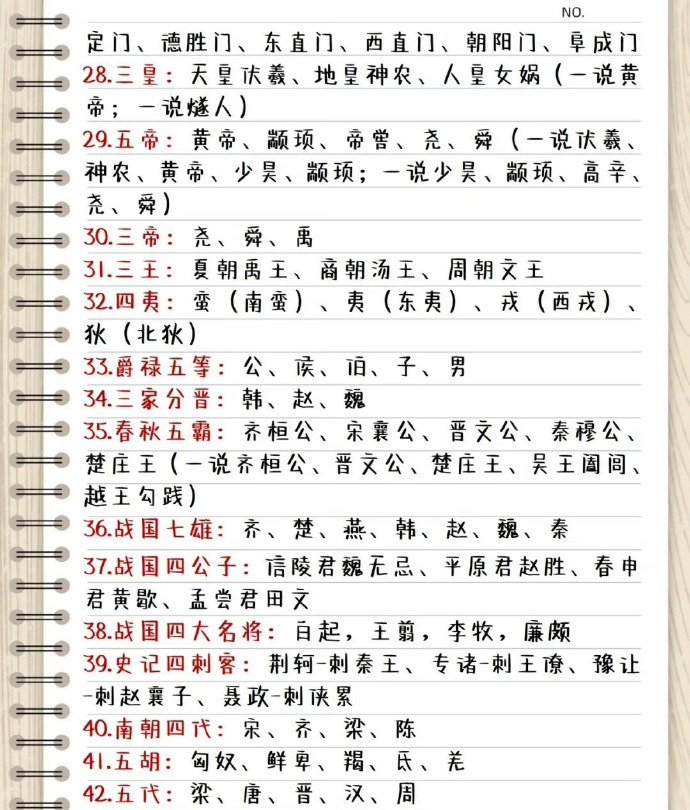 NO.
定门、德胜门、东直门、西直门、朝阳门、阜成门
28.三皇：天皇伏羲、地皇神农、人皇女娲（一说黄
帝；一说燧人）
29.五帝：黄帝、颛顼、帝喾、尧、舜（一说伏羲、
神农、黄帝、少昊、颛顼；一说少昊、颛顼、高辛、
尧、舜）
30.三帝：尧、舜、禹
31.三王：夏朝禹王、商朝汤王、周朝文王
32.四夷：蛮（南蛮）、夷（东夷）、戎（西戎）、
狄（北狄）
33.爵禄五等：公、侯、伯、子、男
34.三家分晋：韩、赵、魏
35.春秋五霸：齐桓公、宋襄公、晋文公、秦穆公、
楚庄王（一说齐桓公、晋文公、楚庄王、吴王阖闾、
越王勾践）
36.战国七雄：齐、楚、燕、韩、赵、魏、秦
37.战国四公子：信陵君魏无忌、平原君赵胜、春申
君黄歇、孟尝君田文
38.战国四大名将：白起，王翦，李牧，廉颇
39.史记四刺客：荆轲-刺秦王、专诸-刺王僚、豫让
-刺赵襄子、聂政-刺侠累
40.南朝四代：宋、齐、梁、陈
41.五胡：匈奴、鲜卑、羯、氐、羌
42.五代：梁、唐、晋、汉、周